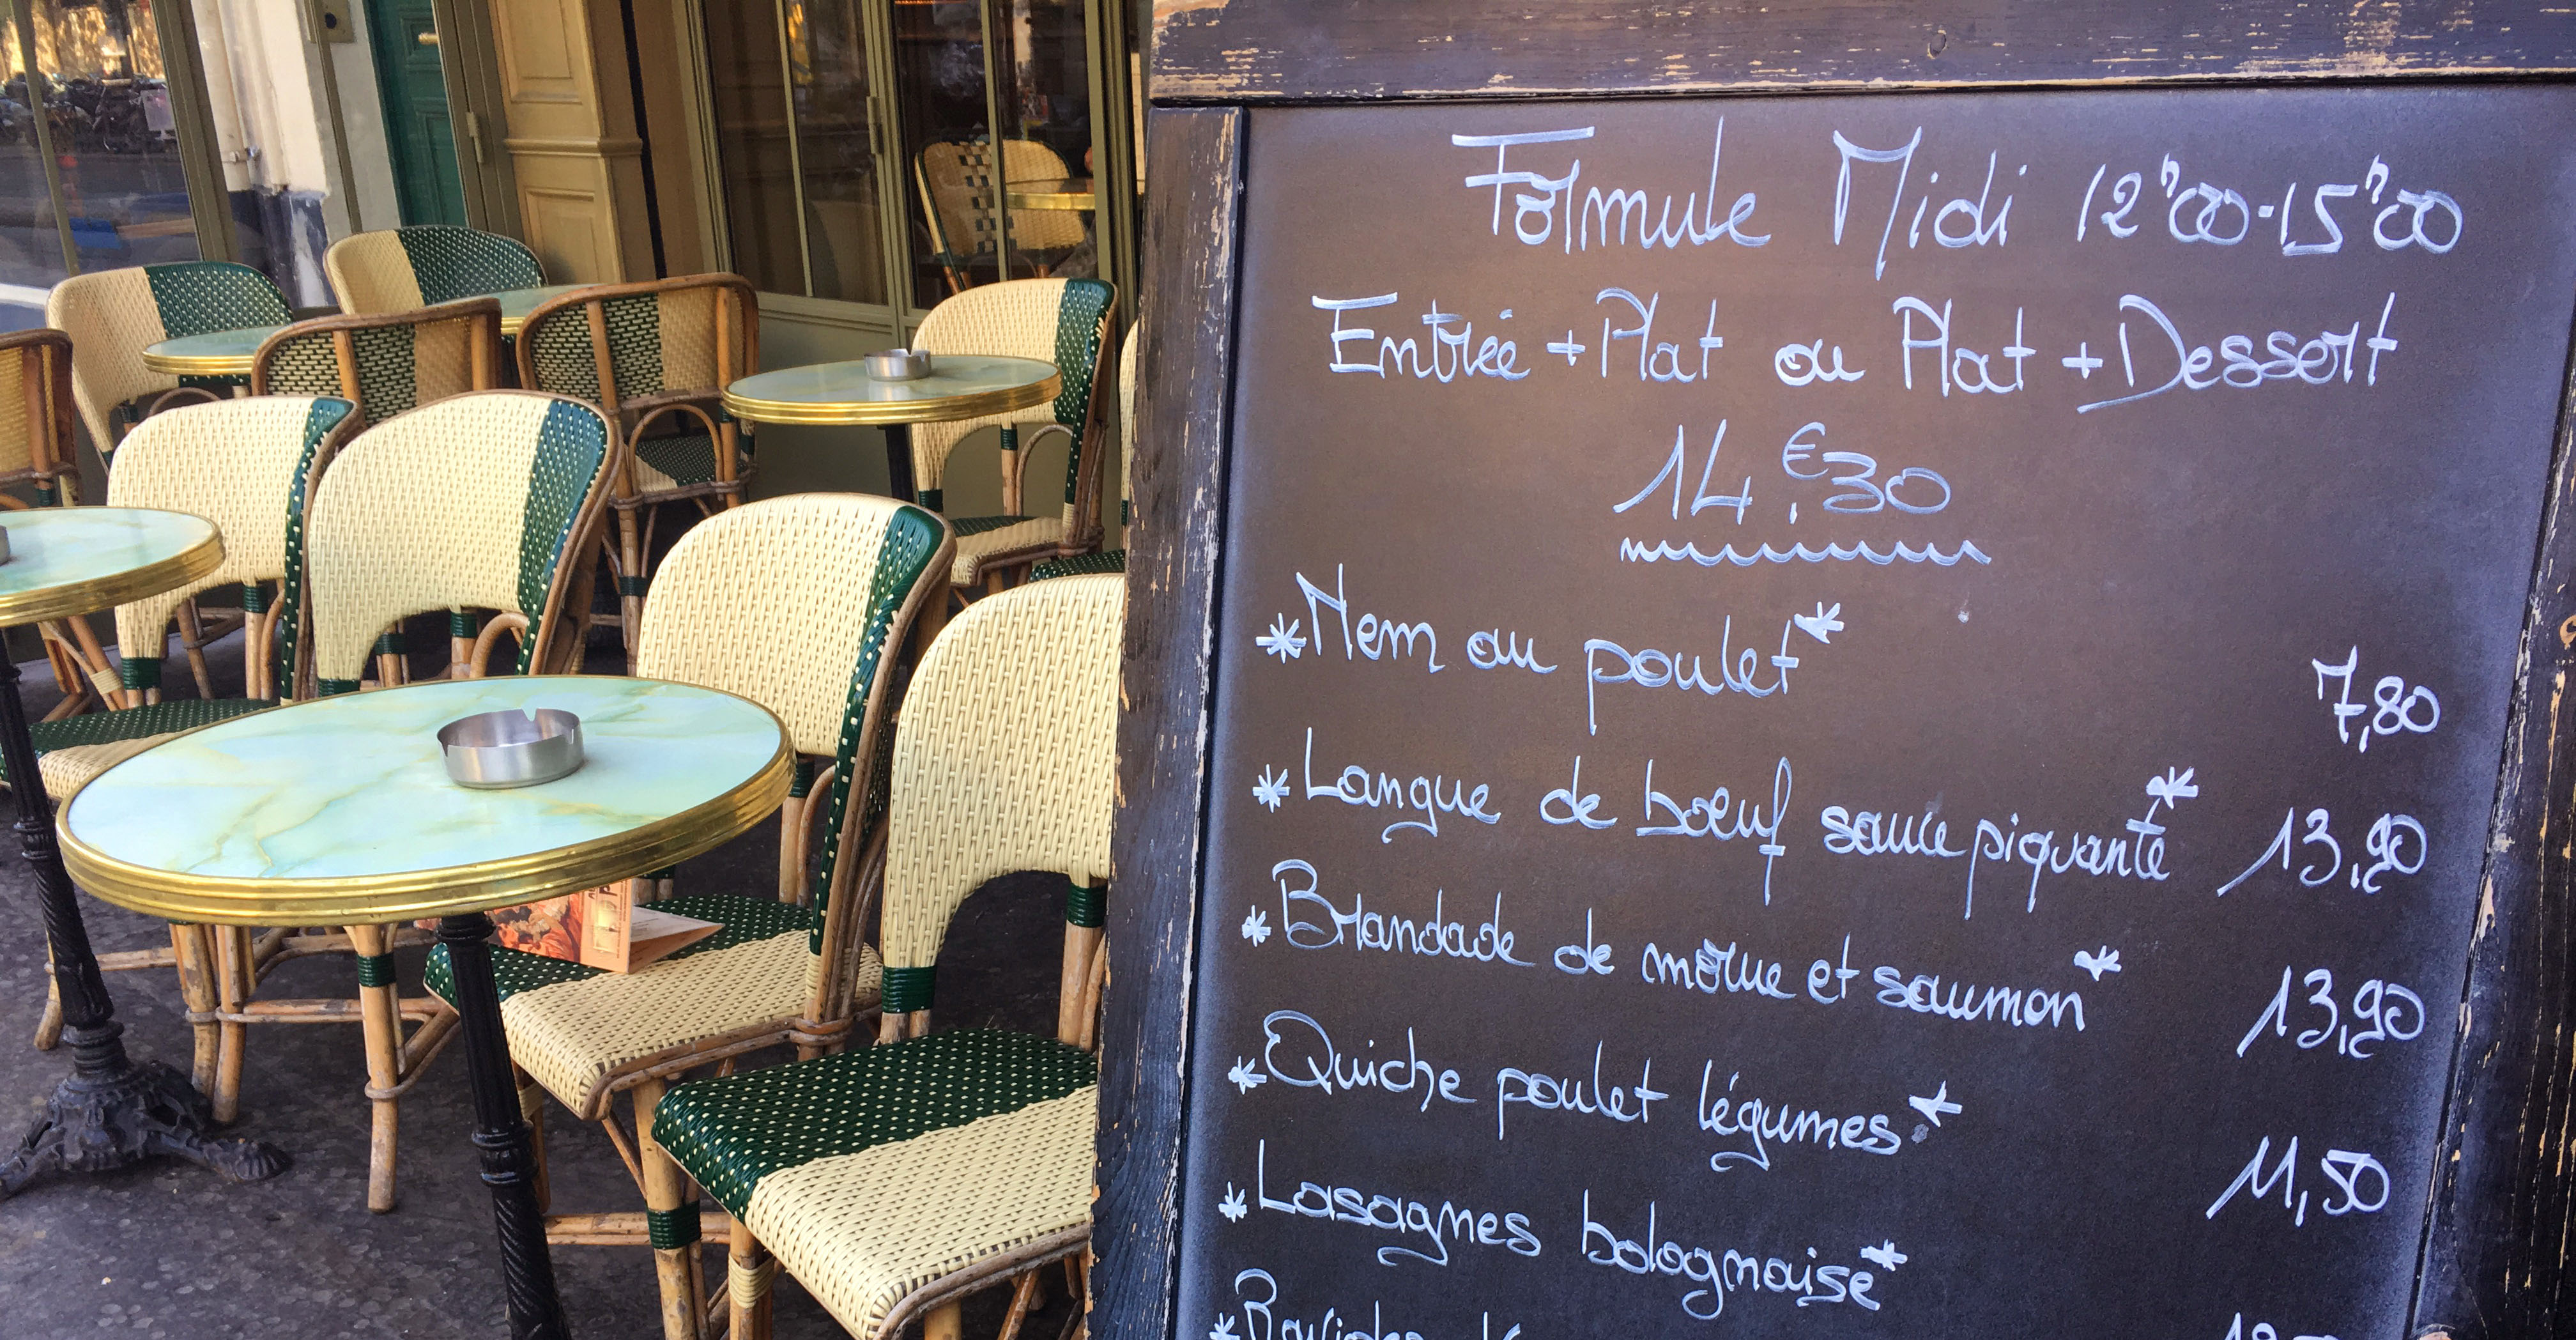 Formule Midi 12h00-15h00
Entrée + Plat ou Plat + Dessert
14,€30
*Nem au poulet* 7,80
*Langue de boeuf sauce piquante* 13,90
*Brandade de morue et saumon* 13,90
*Quiche poulet légumes* 11,50
*Lasagnes bolognaise*